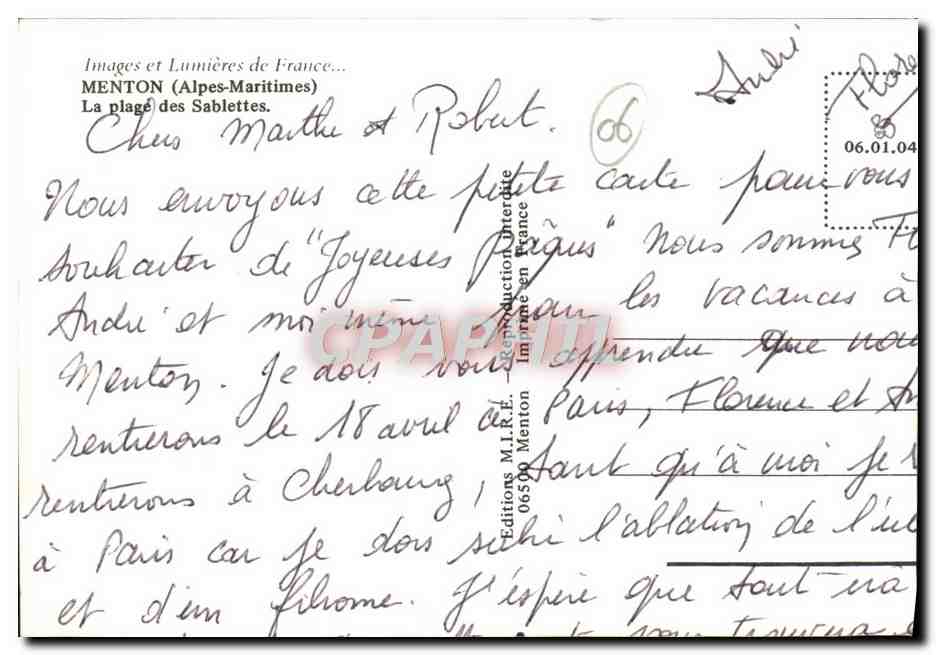 Images et Lumières de France...
MENTON (Alpes-Maritimes)
La plage des Sablettes.
André
06.01.04
06
Chers Marthe et Robert.
Nous envoyons cette petite carte pour vous
souhaiter de "Joyeuses Pâques" Nous sommes
André et moi même pour les vacances à
Menton. Je dois vous apprendre que
rentrerons le 18 avril à Paris, Florence et
rentrerons à Cherbourg, tant qu'à moi je
à Paris car je dois subir l'ablation de
et d'un fibrome. J'espère que tout ira
Editions M.I.R.E. — Reproduction interdite
06500 Menton Imprimé en France
CPAPHIL